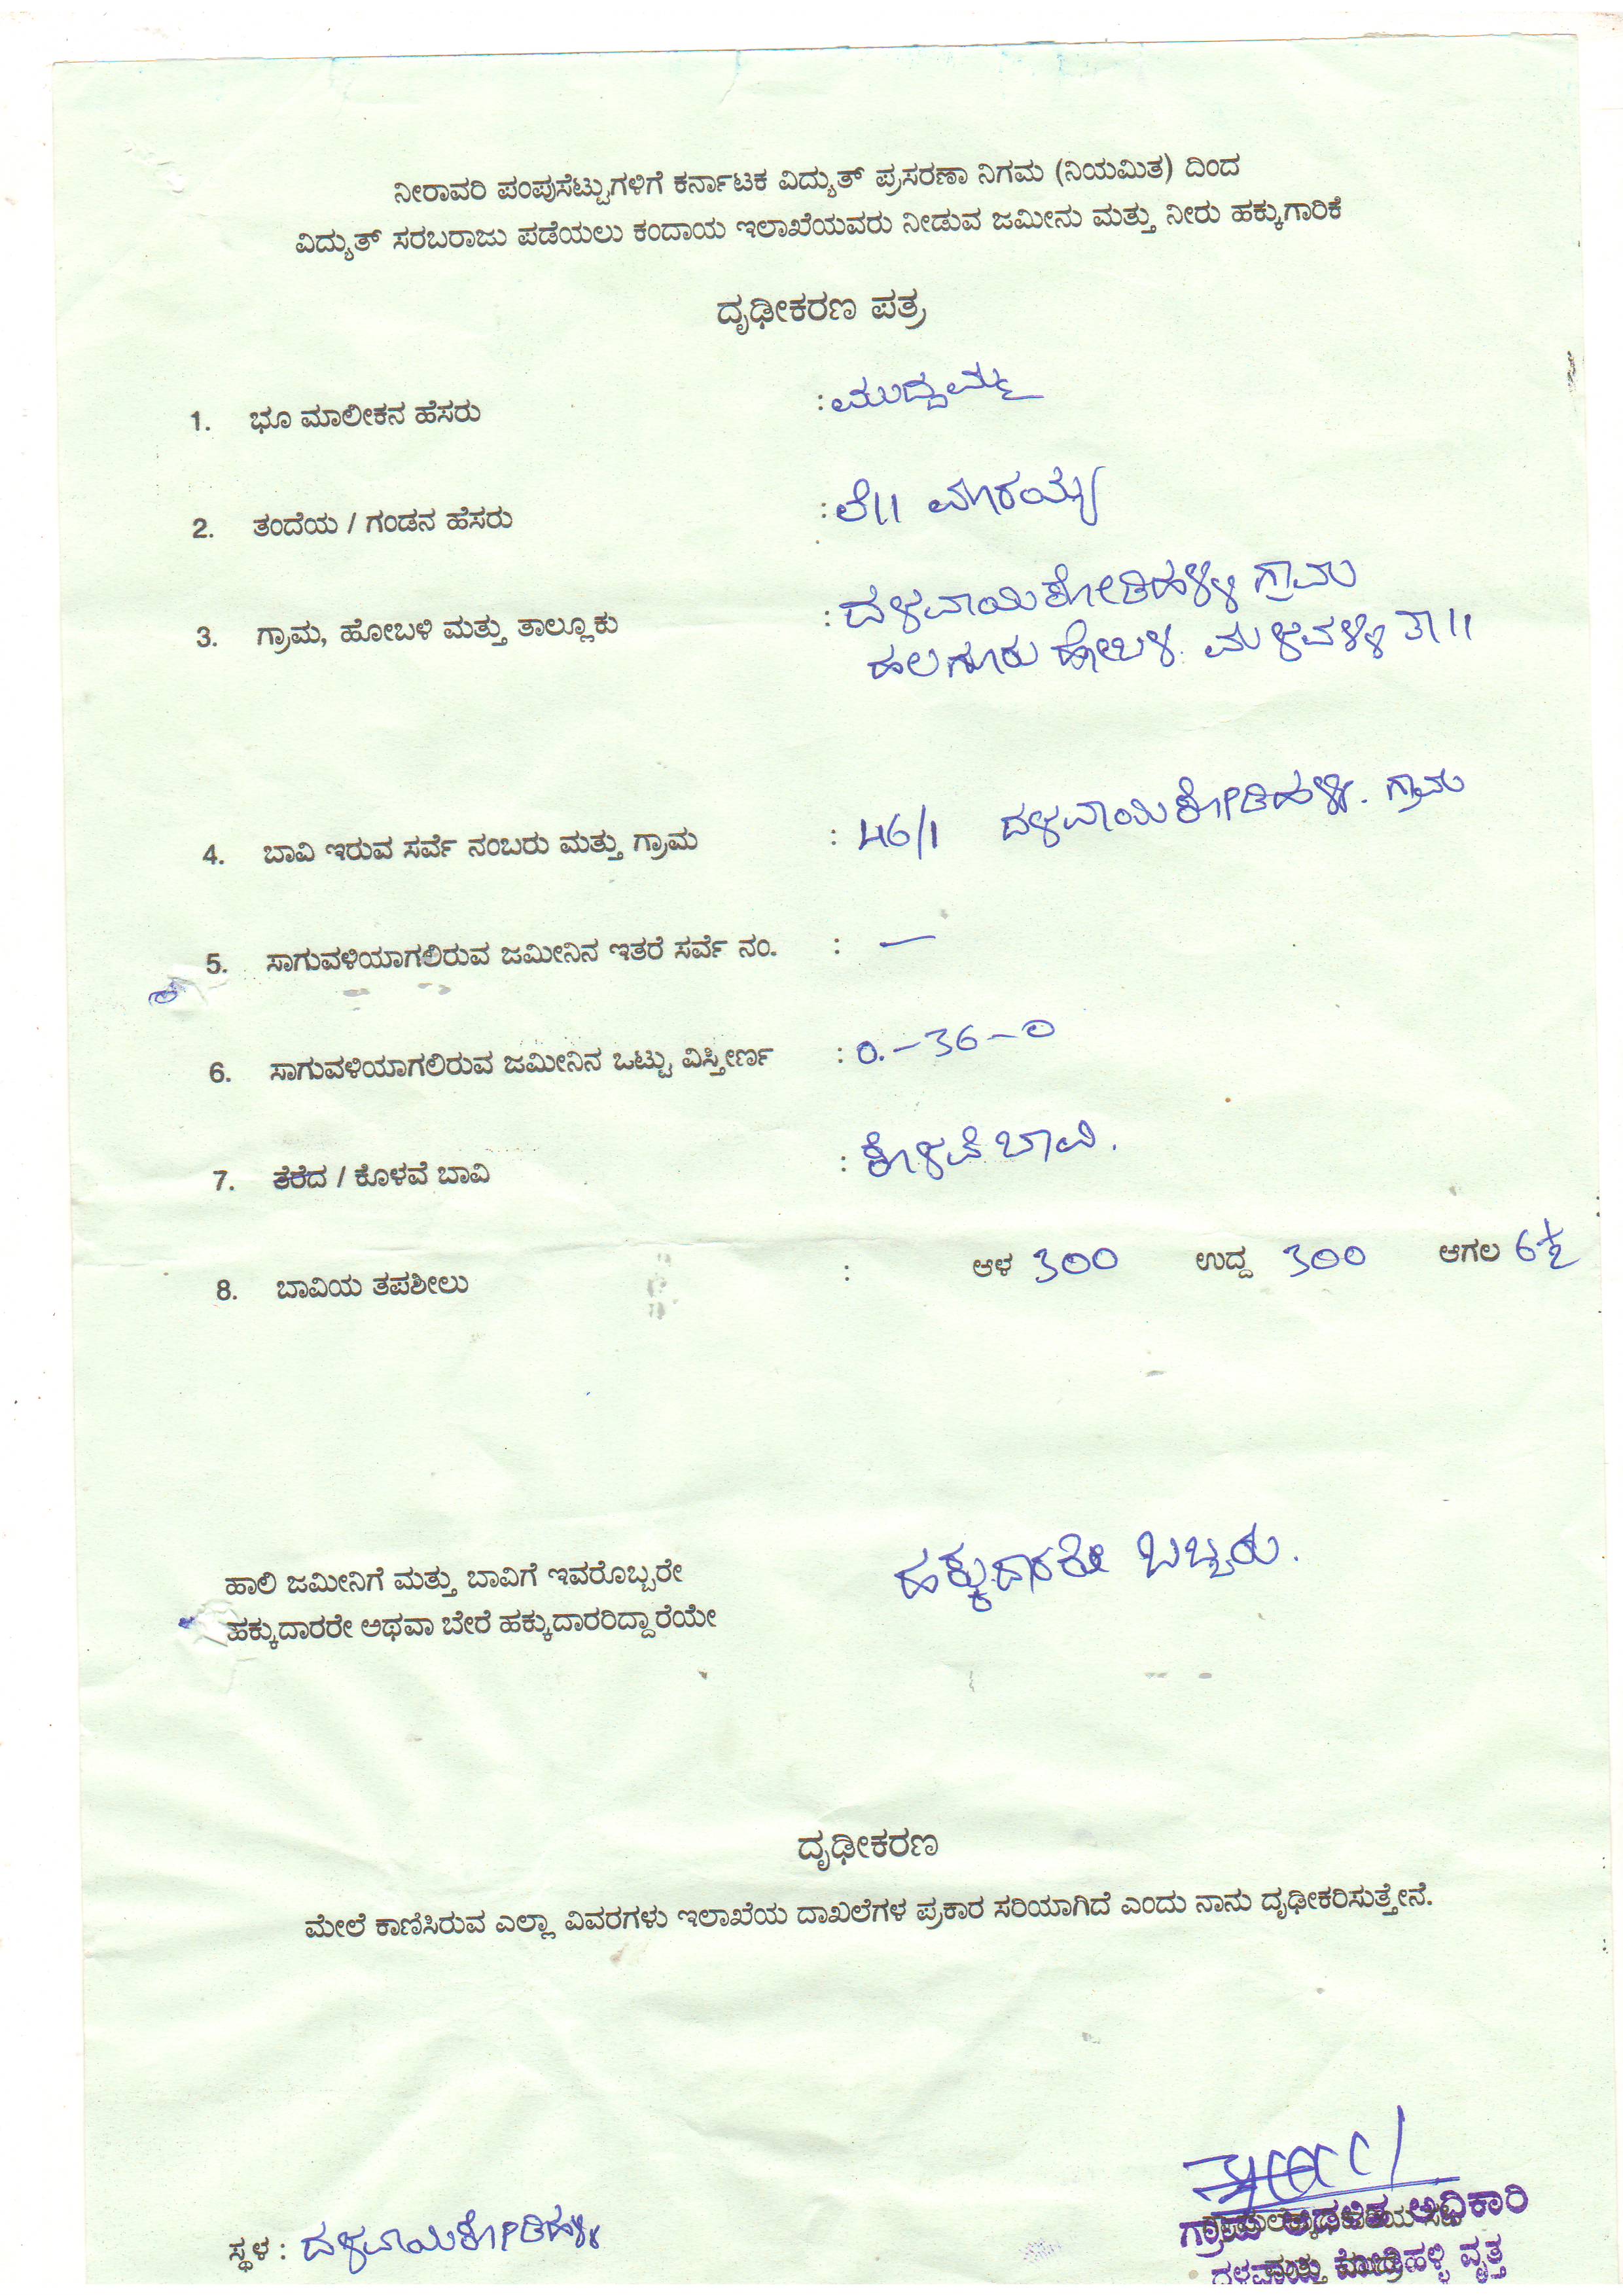 ನೀರಾವರಿ ಪಂಪುಸೆಟ್ಟುಗಳಿಗೆ ಕರ್ನಾಟಕ ವಿದ್ಯುತ್ ಪ್ರಸರಣಾ ನಿಗಮ (ನಿಯಮಿತ) ದಿಂದ
ವಿದ್ಯುತ್ ಸರಬರಾಜು ಪಡೆಯಲು ಕಂದಾಯ ಇಲಾಖೆಯವರು ನೀಡುವ ಜಮೀನು ಮತ್ತು ನೀರು ಹಕ್ಕುಗಾರಿಕೆ
ದೃಢೀಕರಣ ಪತ್ರ
1. ಭೂ ಮಾಲೀಕನ ಹೆಸರು : ಮುದ್ದಮ್ಮ
2. ತಂದೆಯ / ಗಂಡನ ಹೆಸರು : ಲೆ|| ಮಾರಯ್ಯ
3. ಗ್ರಾಮ, ಹೋಬಳಿ ಮತ್ತು ತಾಲ್ಲೂಕು : ದಳವಾಯಿಕೋಡಿಹಳ್ಳಿ ಗ್ರಾಮ
ಹಲಗೂರು ಹೋಬಳಿ. ಮಳವಳ್ಳಿ ತಾ||
4. ಬಾವಿ ಇರುವ ಸರ್ವೆ ನಂಬರು ಮತ್ತು ಗ್ರಾಮ : 46/1 ದಳವಾಯಿಕೋಡಿಹಳ್ಳಿ. ಗ್ರಾಮ
5. ಸಾಗುವಳಿಯಾಗಲಿರುವ ಜಮೀನಿನ ಇತರೆ ಸರ್ವೆ ನಂ. : —
6. ಸಾಗುವಳಿಯಾಗಲಿರುವ ಜಮೀನಿನ ಒಟ್ಟು ವಿಸ್ತೀರ್ಣ : 0.-36-0
7. ತೆಕೆದ / ಕೊಳವೆ ಬಾವಿ : ಕೊಳವೆ ಬಾವಿ.
8. ಬಾವಿಯ ತಪಶೀಲು : ಆಳ 300 ಉದ್ದ 300 ಆಗಲ 6½
ಹಾಲಿ ಜಮೀನಿಗೆ ಮತ್ತು ಬಾವಿಗೆ ಇವರೊಬ್ಬರೇ
ಹಕ್ಕುದಾರರೇ ಅಥವಾ ಬೇರೆ ಹಕ್ಕುದಾರರಿದ್ದಾರೆಯೇ
ಹಕ್ಕುದಾರರೇ ಒಬ್ಬರು.
ದೃಢೀಕರಣ
ಮೇಲೆ ಕಾಣಿಸಿರುವ ಎಲ್ಲಾ ವಿವರಗಳು ಇಲಾಖೆಯ ದಾಖಲೆಗಳ ಪ್ರಕಾರ ಸರಿಯಾಗಿದೆ ಎಂದು ನಾನು ದೃಢೀಕರಿಸುತ್ತೇನೆ.
ಸ್ಥಳ : ದಳವಾಯಿಕೋಡಿಹಳ್ಳಿ
ಅಧಿಕಾರಿ
ವೃತ್ತ